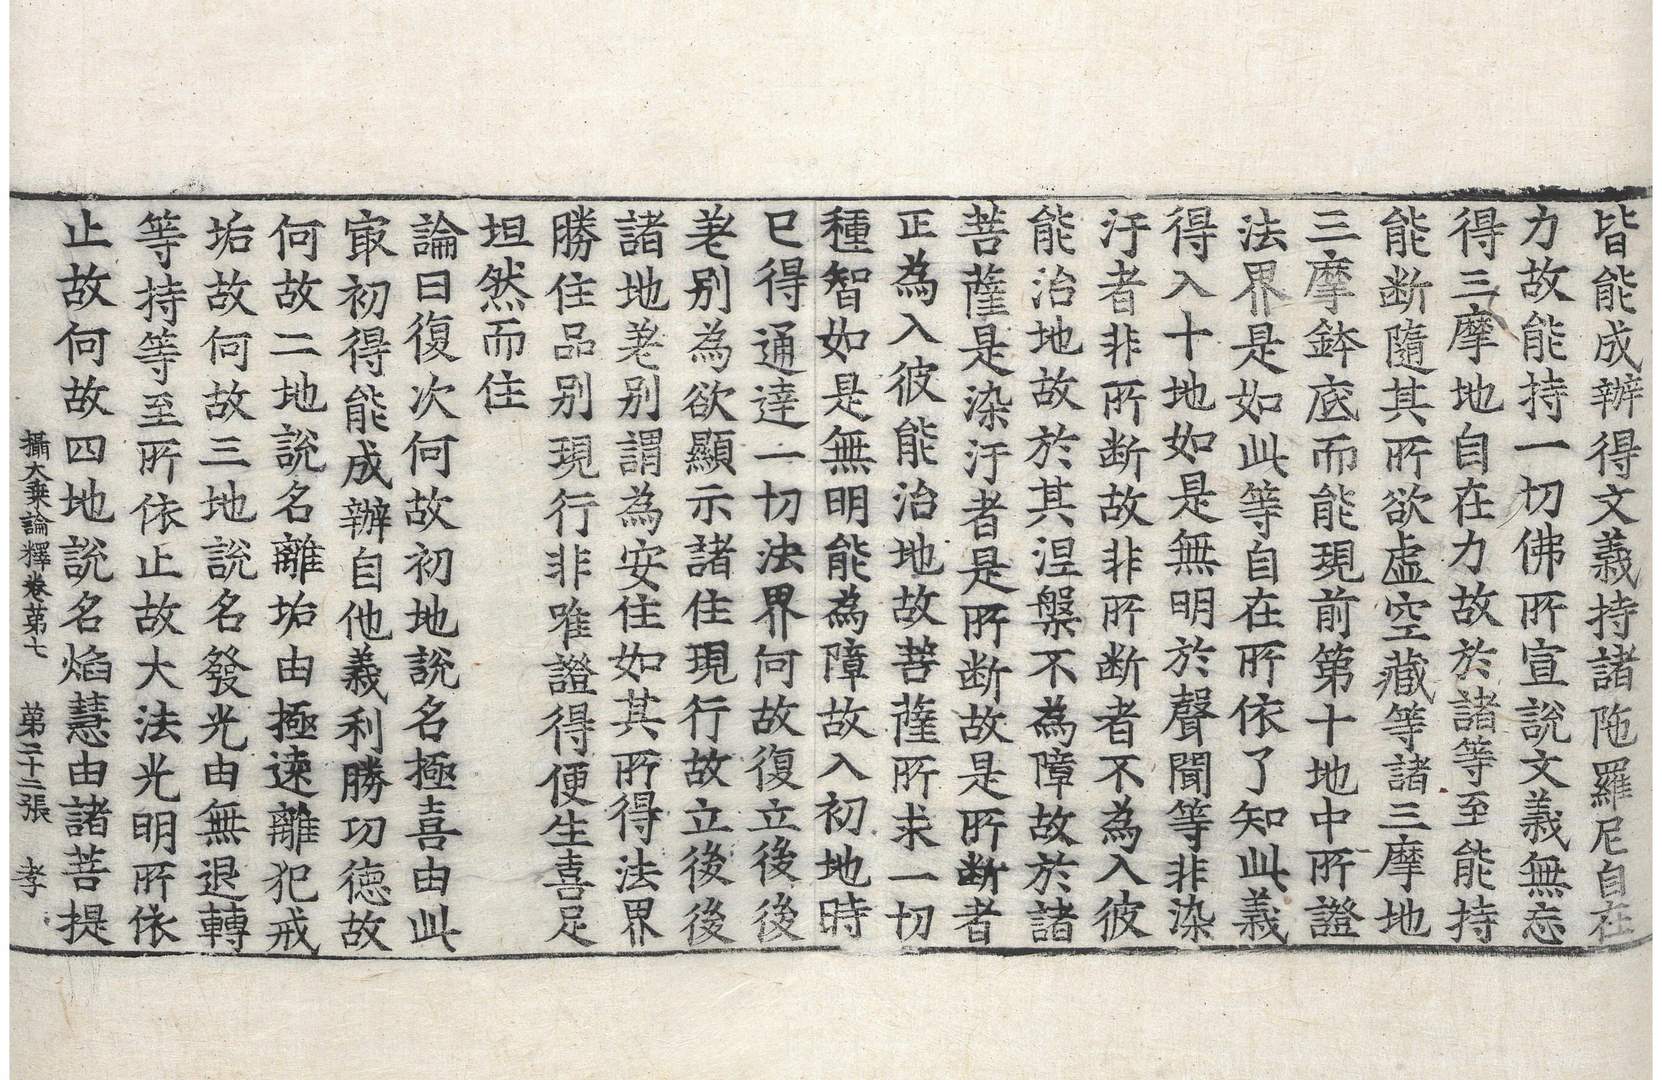 皆能成辦得文義持諸陁羅尼自在
力故能持一切佛所宣說文義無忘
得三摩地自在力故於諸等至能持
能断隨其所欲虛空藏等諸三摩地
三摩鉢底而能現前第十地中所證
法界是如此等自在所依了知此義
得入十地如是無明於聲聞等非染
汙者非所断故非所断者不為入彼
能治地故於其涅槃不為障故於諸
菩薩是染汙者是所断故是所断者
正為入彼能治地故菩薩所求一切
種智如是無明能為障故入初地時
已得通達一切法界何故復立後後
差別為欲顯示諸住現行故立後後
諸地差別謂為安住如其所得法界
勝住品別現行非唯證得便生喜足
坦然而住
論曰復次何故初地說名極喜由此
㝡初得能成辦自他義利勝功德故
何故二地說名離垢由極遠離犯戒
垢故何故三地說名發光由無退轉
等持等至所依止故大法光明所依
止故何故四地說名焰慧由諸菩提
攝大乗論釋卷第七 第二十二張 孝